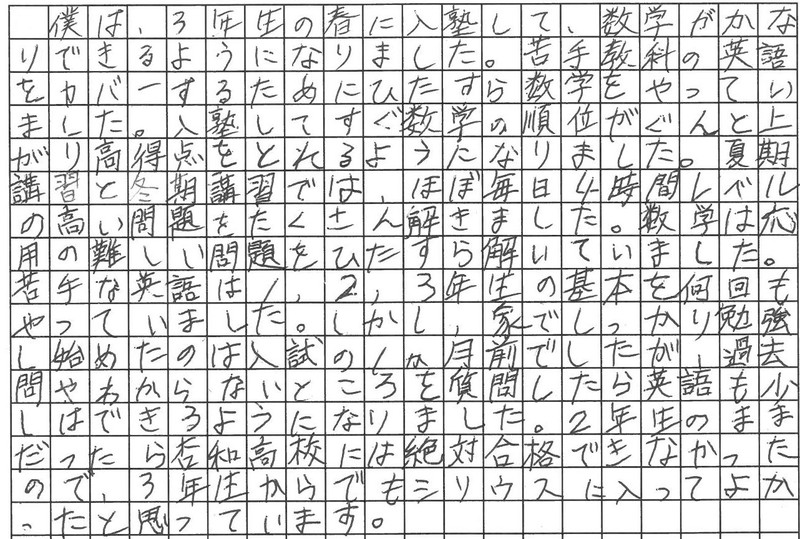 僕は、3年生の春に入塾して、数学がかな
りできるようになりました。苦手教科の英語
をカバーするためにひたすら数学をやってい
ました。入塾してすぐ数学の順位がぐんと上
がり高得点をとれるようになりました。夏期
講習と冬期講習では、ほぼ毎日4時間レベル
の高い問題をたくさん解きました。数学は応
用の難しい問題をひたすら解いていました。
苦手な英語は1,2,3年生の基本を何回も
やっていました。しかし、家でしっかり勉強
し始めたのは入試の1ヵ月前でしたが、過去
問やわからないところを質問したら英語も少
しはできるようになりました。2年生のまま
だったら杏和高校には絶対合格できなかった
ので、3年生からでもシリウスに入ってよか
ったと思っています。